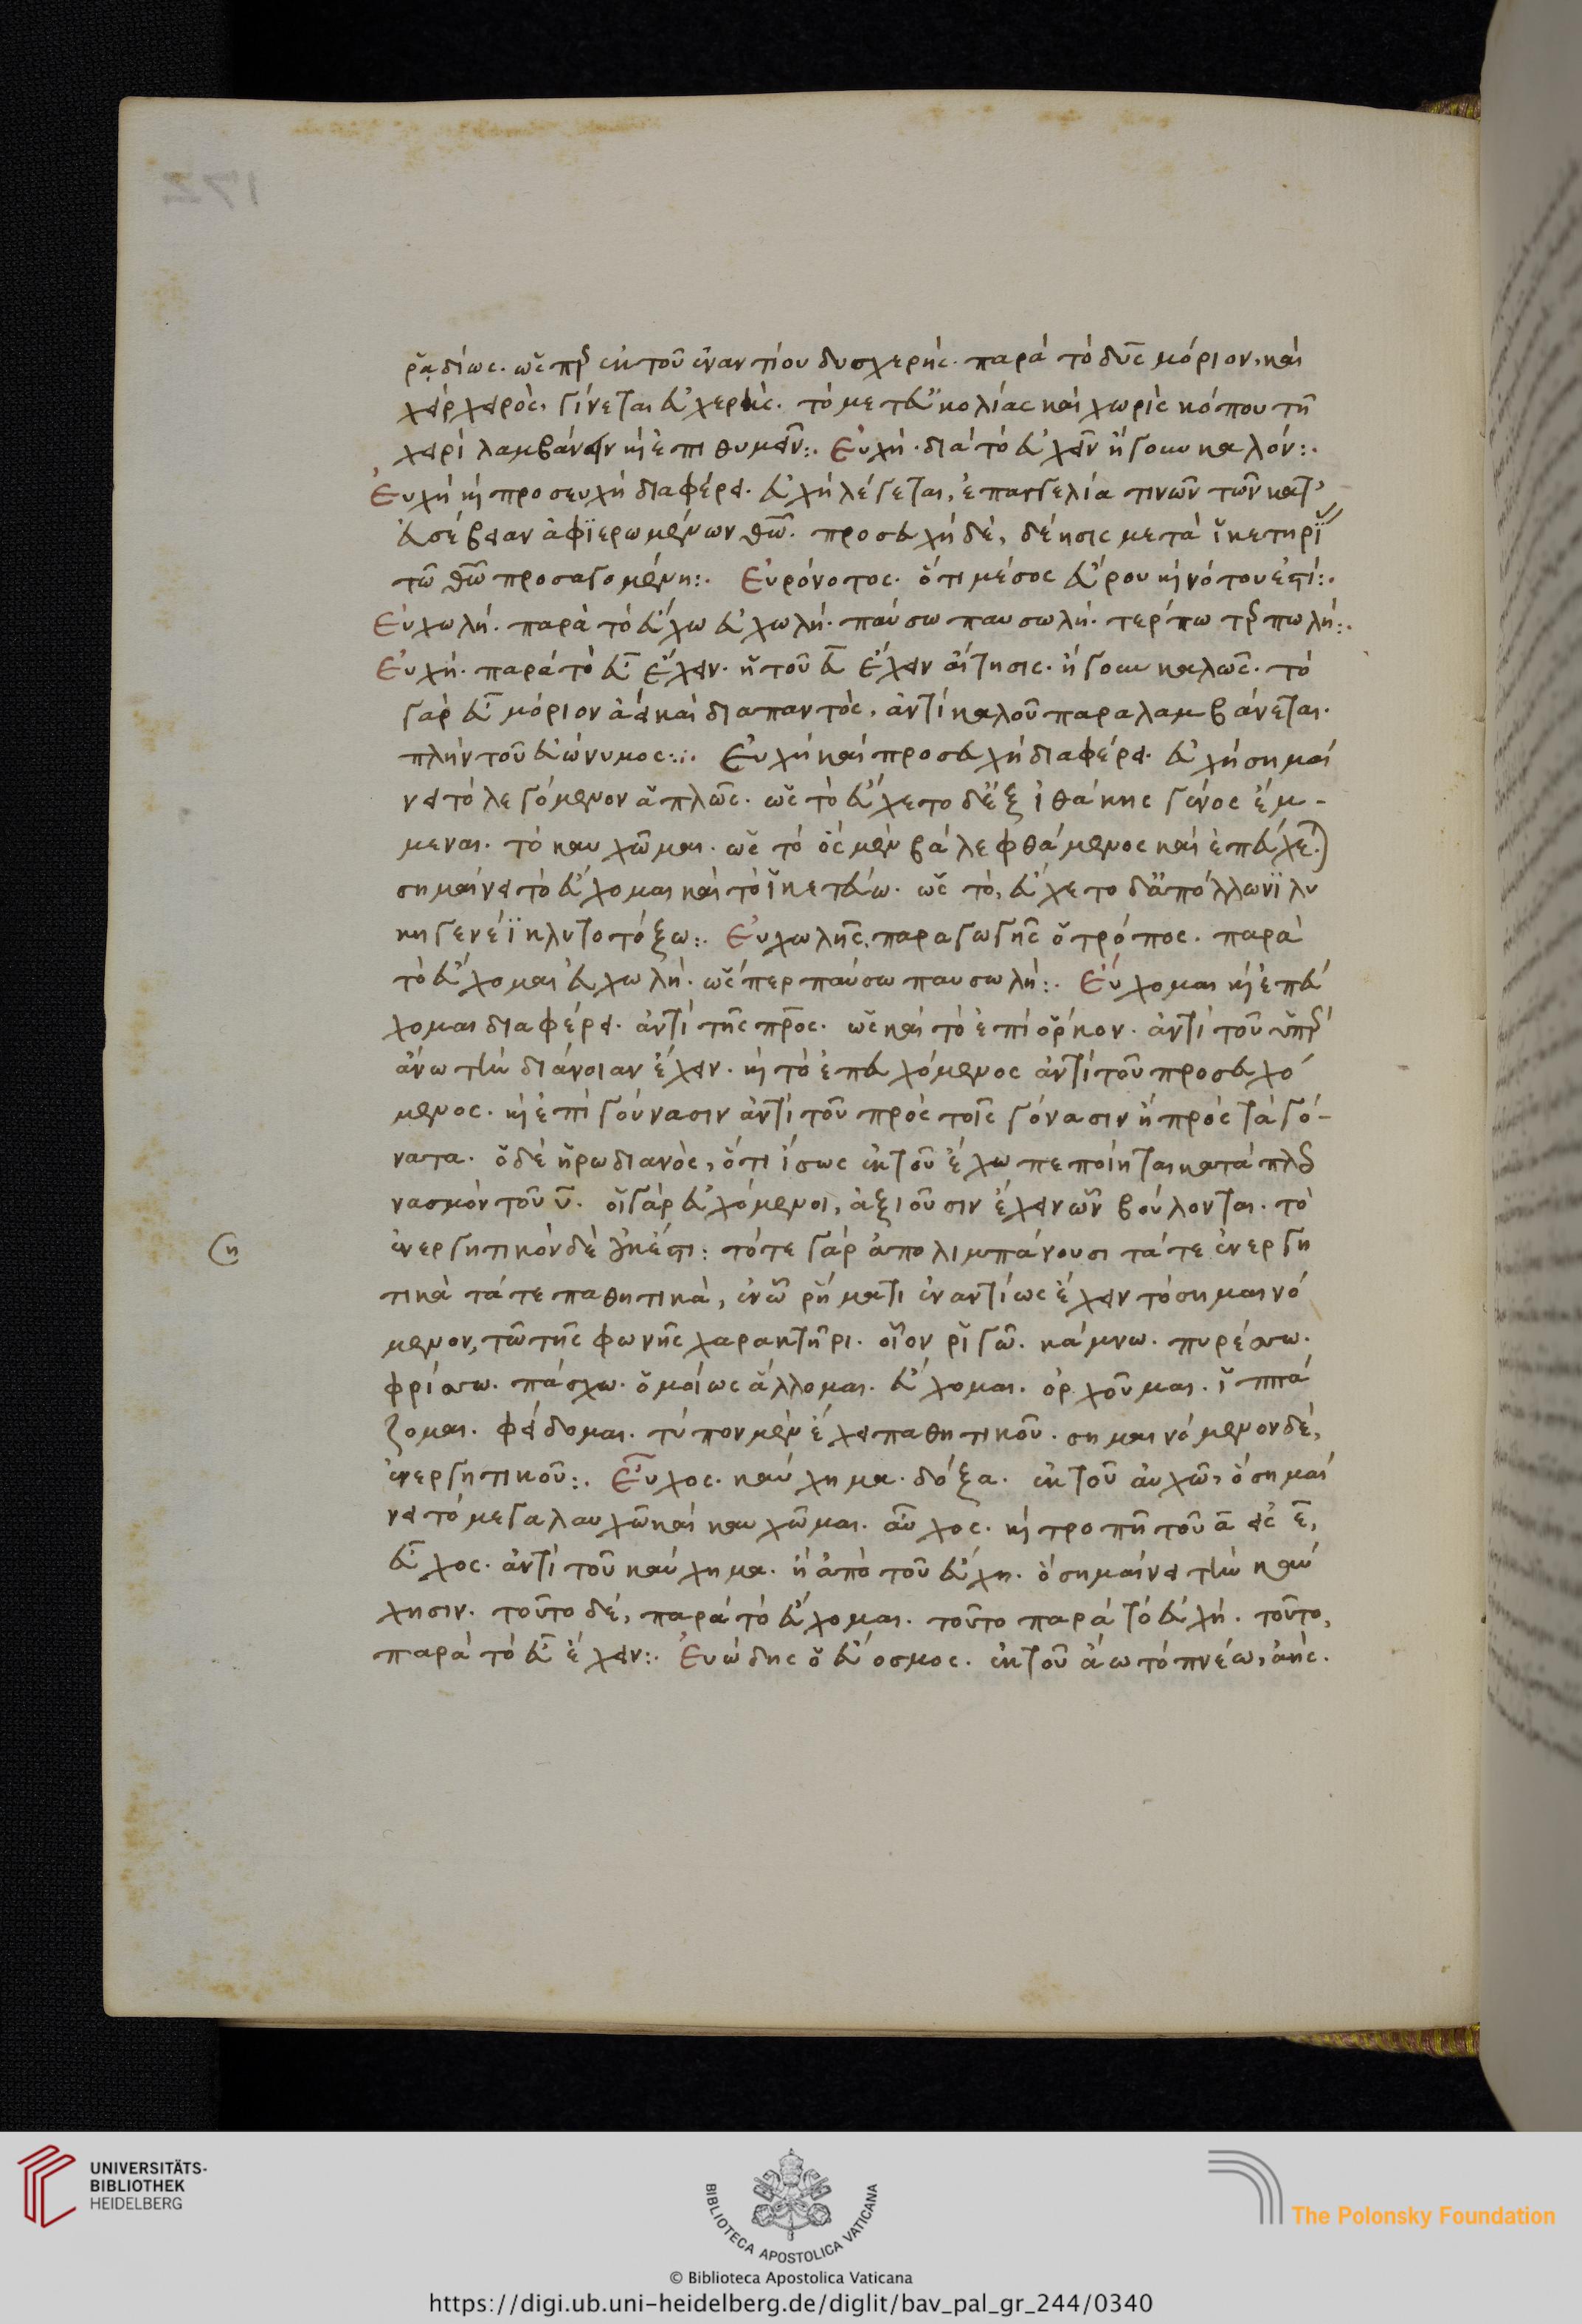 ῥᾳδίως. ὡς πρ ἐκ τοῦ ἐναντίου δυσχερής. παρὰ τὸ δυς μόριον, καὶ
χεὶρ χειρὸς, γίνεται εὐχερὴς. τὸ μετ εὐκολίας καὶ χωρὶς κόπου τῇ
χειρὶ λαμβάνειν κỳ ἐπιθυμεῖν:. Εὐχή. διὰ τὸ εὖ χεῖν ἤγουν καλόν:.
Εὐχὴ κỳ προσευχὴ διαφέρει. εὐχὴ λέγεται, ἐπαγγελία τινῶν τῶν κατ'
εὐσέβειαν ἀφϊερωμένων θῶ. προσευχὴ δέ, δέησις μετὰ ἱκετηρί
τῶ θῶ προσαγομένη:. Εὐρόνοτος. ὅτι μέσος εὔρου κỳ νότου ἐστί:.
Εὐχωλή. παρὰ τὸ εὔχω εὐχωλή. παύσω παυσωλή. τέρπω τερπωλή:.
Εὐχή. παρὰ τὸ εὖ ἔχειν. ἡ τοῦ εὖ ἔχειν αἴτησις. ἤγουν καλῶς. τὸ
γὰρ εὖ μόριον ἀεὶ καὶ διαπαντὸς, ἀντὶ καλοῦ παραλαμβάνεται.
πλὴν τοῦ εὐώνυμος:.:. Εὐχὴ καὶ προσευχὴ διαφέρει. εὐχὴ σημαί
νει τὸ λεγόμενον ἁπλῶς. ὡς τὸ εὔχετο δ' ἐξ ἰθάκης γένος ἔμ-
μεναι. τὸ καυχῶμαι. ὡς τὸ ὁς μὲν βάλε φθάμενος καὶ ἐπεύχε)
σημαίνει τὸ εὔχομαι καὶ τὸ ἱκετεύω. ὡς τὸ, εὔχετο δ' ἀπόλλωνϊ λυ
κηγενέϊ κλυτοτόξω:. Εὐχωλῆς, παραγωγῆς ὁ τρόπος. παρὰ
τὸ εὔχομαι εὐχωλή. ὥσπερ παύσω παυσωλή:. Εὔχομαι κỳ ἐπεύ
χομαι διαφέρει. ἀντὶ τῆς πρὸς. ὡς καὶ τὸ ἐπὶ ὅρκον. ἀντὶ τοῦ ὑπὲρ
ἄνω τὴν διάνοιαν ἔχειν. κỳ τὸ ἐπευχόμενος ἀντὶ τοῦ προσευχό
μενος. κỳ ἐπὶ γούνασιν ἀντὶ τοῦ πρὸς τοῖς γόνασιν ἢ πρὸς τὰ γό-
νατα. ὁ δὲ ἡρωδιανὸς, ὅτι ἴσως ἐκ τοῦ ἔχω πεποίηται κατὰ πλεο
νασμὸν τοῦ υ. οἱ γὰρ εὐχόμενοι, ἀξιοῦσιν ἔχειν ὧν βούλονται. τὸ
ἐνεργητικὸν δὲ οὐκ ἔστι: τότε γὰρ ἀπολιμπάνουσι τά τε ἐνεργη
(η
τικὰ τά τε παθητικὰ, ἐν ὧ ῥήματι ἐναντίως ἔχειν τὸ σημαινό
μενον, τῶ τῆς φωνῆς χαρακτῆρι. οἷον ῥιγῶ. κάμνω. πυρέσσω.
φρίσσω. πάσχω. ὁμοίως ἅλλομαι. εὔχομαι. ὀρχοῦμαι. ἱππά
ζομαι. φείδομαι. τύπον μὲν ἔχει παθητικοῦ. σημαινόμενον δέ,
ἐνεργητικοῦ:. Εὖχος. καύχημα. δόξα. ἐκ τοῦ αὐχῶ, ὁ σημαί
νει τὸ μεγαλαυχῶ καὶ καυχῶμαι. αὖχος. κỳ τροπῆ τοῦ α εἰς ε,
εὖχος. ἀντὶ τοῦ καύχημα. ἢ ἀπὸ τοῦ εὔχη. ὁ σημαίνει τὴν καύ
χησιν. τοῦτο δὲ, παρὰ τὸ εὔχομαι. τοῦτο παρὰ τὸ εὐχή. τοῦτο,
παρὰ τὸ εὖ ἔχειν:. Εὐώδης ὁ εὔοσμος. ἐκ τοῦ ἄω τὸ πνέω, ἀής.
UNIVERSITÄTS-
BIBLIOTHEK
HEIDELBERG
BIBLIOTECA APOSTOLICA VATICANA
The Polonsky Foundation
© Biblioteca Apostolica Vaticana
https://digi.ub.uni-heidelberg.de/diglit/bav_pal_gr_244/0340